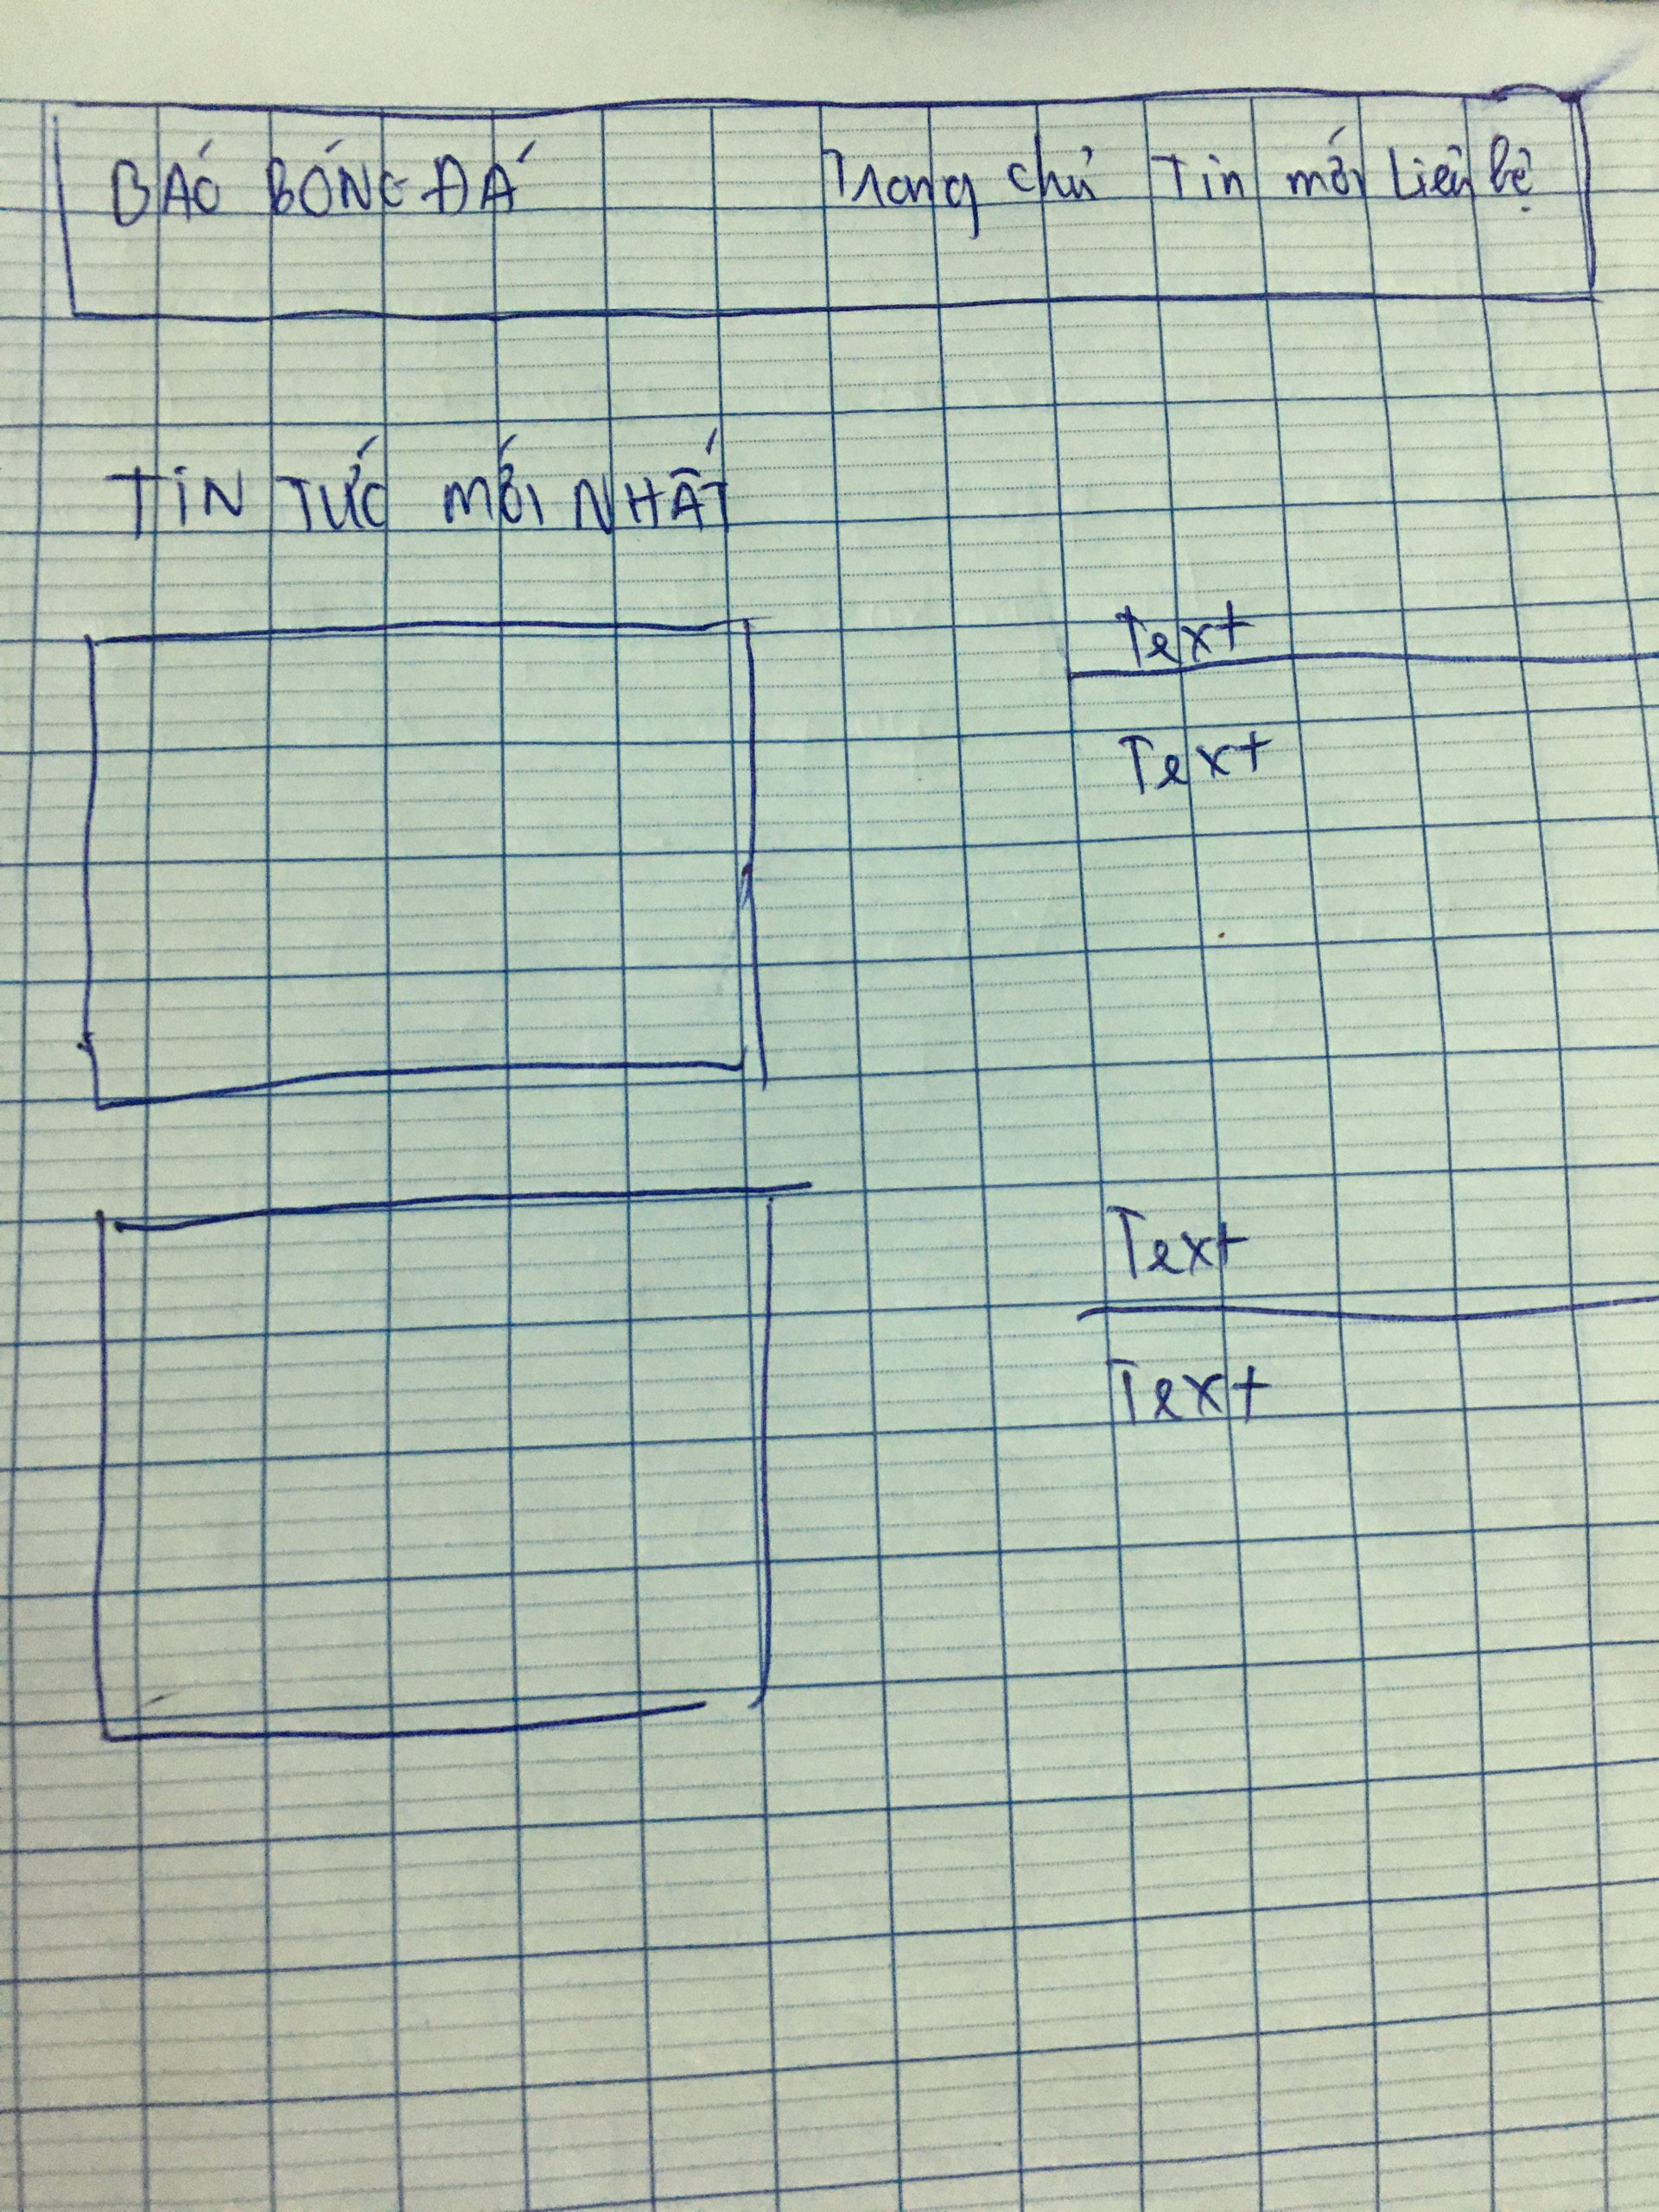 BÁO BÓNG ĐÁ Trang chủ Tin mới Liên hệ
TIN TỨC MỚI NHẤT
Text
Text
Text
Text